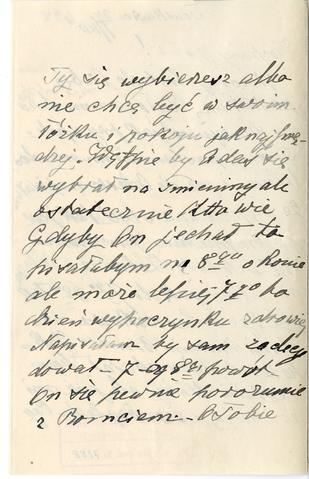 Ty się wybierzesz albo
nie chcę być w swoim
łóżku i pokoju jak najprę-
dzej. Wątpię by Adaś się
wybrał na imieniny ale
ostatecznie kto wie
Gdyby On jechał to
pisałabym na 8go o konie
ale może lepiej 7go bo
dzień wypoczynku zdrowiej
Napisałam by sam zadecy
dował - 7 czy 8 powrót
On się pewnie porozumie
z Romciem - O Tobie